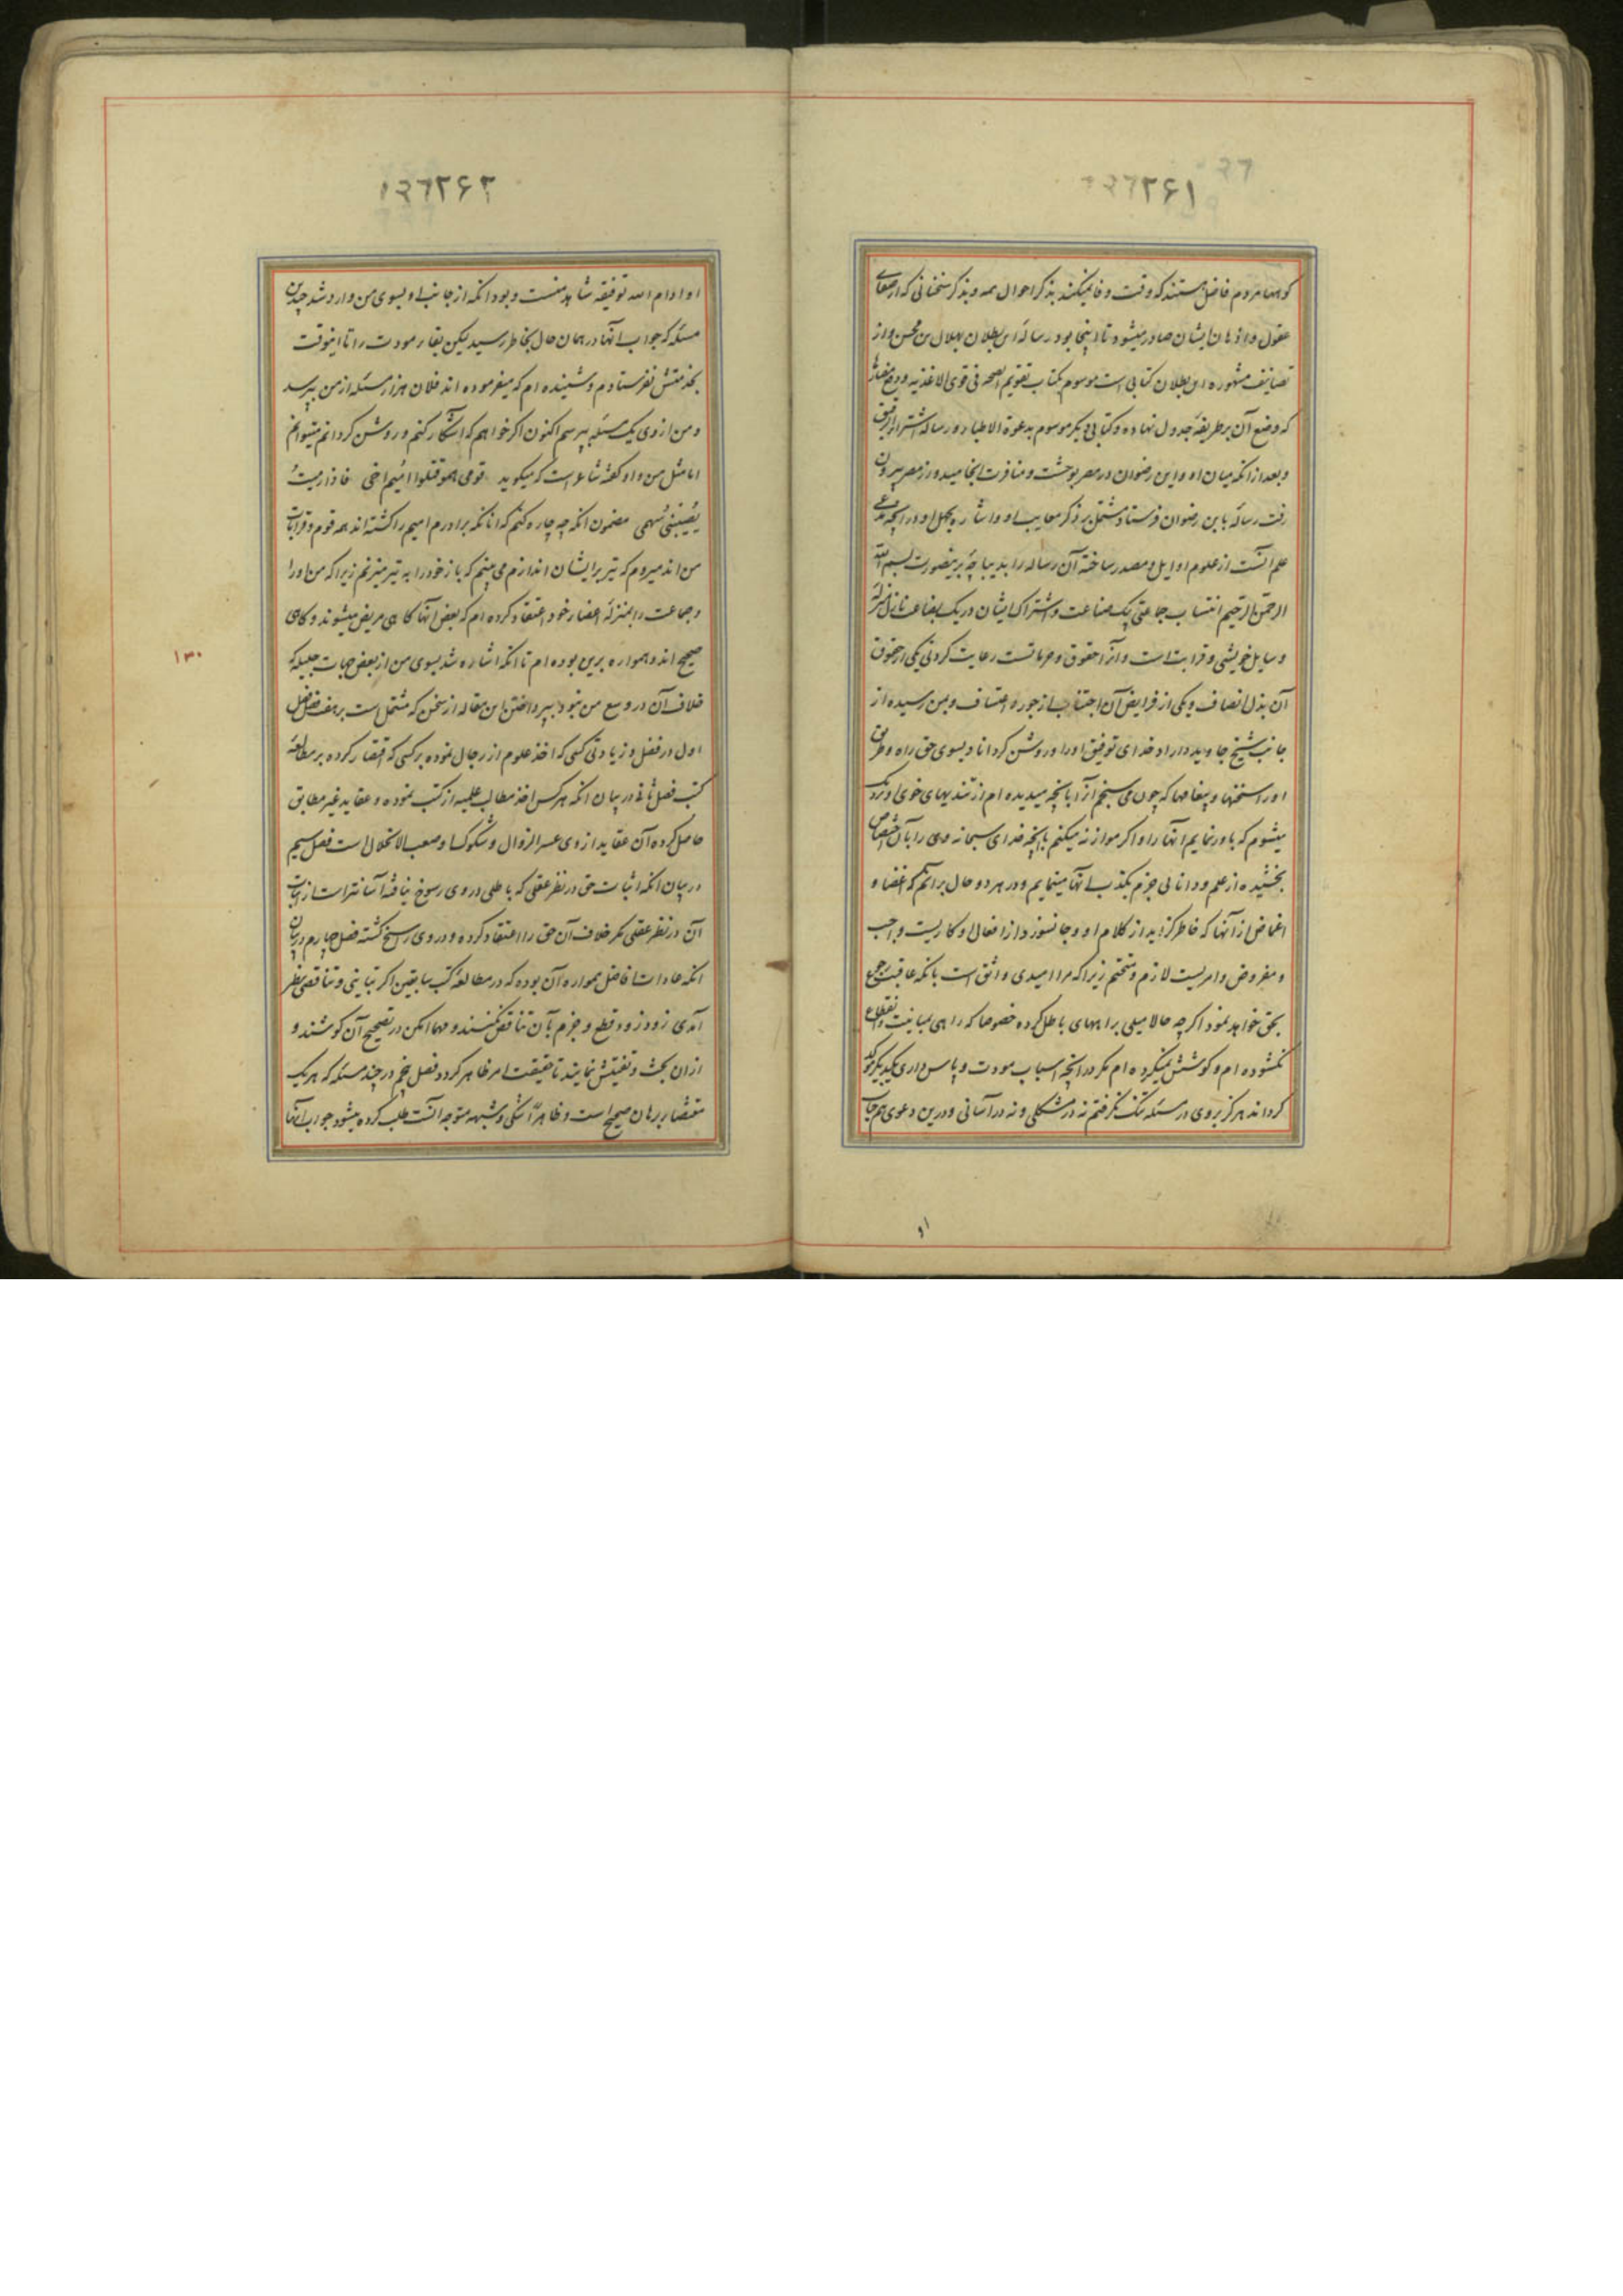 ۱۳۶۲۶۱
کوهها مردم فاضل هستند که وقت وفا نمیکند بذکر احوال همه و بذکر سخنانی که از صفای
عقول و اذهان ایشان صادر میشود تا اینجا بود رساله ابن بطلان بهلال بن محسن و از
تصانیف مشهوره ابن بطلان کتابی است موسوم بکتاب تقویم الصحه فی قوی الاغذیه و دفع مضارها
که وضع آن بر طریقه جدول نهاده و کتابی دیگر موسوم بدعوة الاطبا و رساله اشتراء الرقیق
و بعد از انکه میان او و ابن رضوان در مصر بوحشت و منافرت انجامید و از مصر بیرون
رفت رساله بابن رضوان فرستاد مشتمل بر ذکر معایب او و اشاره بجهل او در آنچه مدعی
علم آنست از علوم اوایل و مصدر ساخته آن رساله را بدیباچه برینصورت بسم الله
الرحمن الرحیم انتساب جماعتی بیک صناعت و اشتراک ایشان در یک بضاعت نازل منزله
وسایل خویشی و قرابت است و انرا حقوق و حرماتست رعایت کردنی یکی از حقوق
آن بذل انصاف و یکی از فرایض آن اجتناب از جور و اعتساف و بمن رسیده از
جانب شیخ جاوید داراد خدای توفیق او را و روشن کرداناد بسوی حق راه و طریق
او را سخنها و پیغامها که چون می سنجم آنرا با آنچه میدیده ام از تندیهای خوی او نزدیک
میشوم که باور نمایم انها را و اکر موازنه میکنم با آنچه خدای سبحانه وی را بآن اختصاص
بخشیده از علم و دانائی جزم بکذب انها مینمایم و در هر دو حال برآنم که اغضا و
اغماض از آنها که خاطر کزاید از کلام او و جانسوزد از افعال او کاریست واجب
و مفروض و امریست لازم و متحتم زیرا که مرا امیدی واثق است بانکه عاقبت رجوع
بحق خواهد نمود اکرچه حالا میلی براههای باطل کرده خصوصا که راهی بمباینت و انقطاع
نکشوده ام و کوشش نمیکرده ام مکر در آنچه اسباب مودت و پاس داری یکدیکر موکد
کرداند هرکز بروی در مسئله تنک نکرفتم نه در مشکلی و نه در آسانی و درین دعوی هم جانب
او
۱۳۶۲۶۲
او ادام الله توفیقه شاهد منست و بود انکه از جانب او بسوی من وارد شد چندین
مسئله که جواب انها در همان حال بخاطر رسید لیکن بقاء مودت را تا اینوقت
بخدمتش نفرستادم و شنیده ام که میفرموده اند فلان هزار مسئله از من بپرسد
و من از وی یک مسئله بپرسم اکنون اکر خواهم که آشکار کنم و روشن کردانم میتوانم
اما مثل من و او کفته شاعر است که میکوید قومی همو قتلوا امیم اخی فاذا رمیت
یصیبنی سهمی مضمون انکه چه چاره کنم که انانکه برادرم امیم را کشته اند همه قوم و قرابات
من اند میروم که تیر بر ایشان اندازم می بینم که باز خود را به تیر میزنم زیرا که من او را
و جماعت را بمنزله اعضاء خود اعتقاد کرده ام که بعض انها کاهی مریض میشوند و کاهی
صحیح اند و همواره برین بوده ام تا انکه اشاره شد بسوی من از بعض جهات جلیله که
خلاف آن در وسع من نبود بپرداختن این مقاله از سخن که مشتمل است بر هفت فصل فصل
اول در فضل و زیادتی کسی که اخذ علوم از رجال نموده بر کسی که اقتصار کرده بر مطالعه
کتب فصل ثانی در بیان انکه هرکس اخذ مطالب علمیه از کتب نموده و عقاید غیر مطابق
حاصل کرده آن عقاید از وی عسر الزوال و شکوک او صعب الانحلال است فصل سیم
در بیان انکه اثبات حق در نظر عقلی که باطلی در وی رسوخ نیافته آسانتر است از اثبات
آن در نظر عقلی که خلاف آن حق را اعتقاد کرده و در وی راسخ کشته فصل چهارم در بیان
انکه عادات افاضل همواره آن بوده که در مطالعه کتب سابقین اکر تباینی و تناقضی بنظر
آمدی زود زود قطع و جزم بآن تناقض نکنند و مهما امکن در تصحیح آن کوشند و
از آن بحث و تفتیش نمایند تا حقیقت امر ظاهر کردد فصل پنجم در چند مسئله که هر یک
مقتضاء برهان صحیح است و ظاهراً شکی و شبهه متوجه آنست طلب کرده میشود جواب انها
۱۳۰